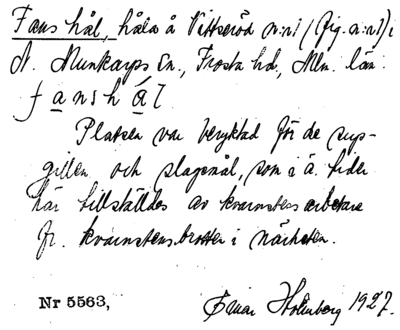 Fans hål, håla å Vittseröd n:o 1 (fig. a: n:1) i
N. Munkarps Sn., Frosta hd., Mlm. län.
fanshål
Platsen var beryktad för de sup-
gillen och slagsmål, som i ä. tider
här tillställdes av kvarnstensarbetare
fr. kvarnstensbrotten i närheten.
Nr 5563, Einar Holmberg 1927.